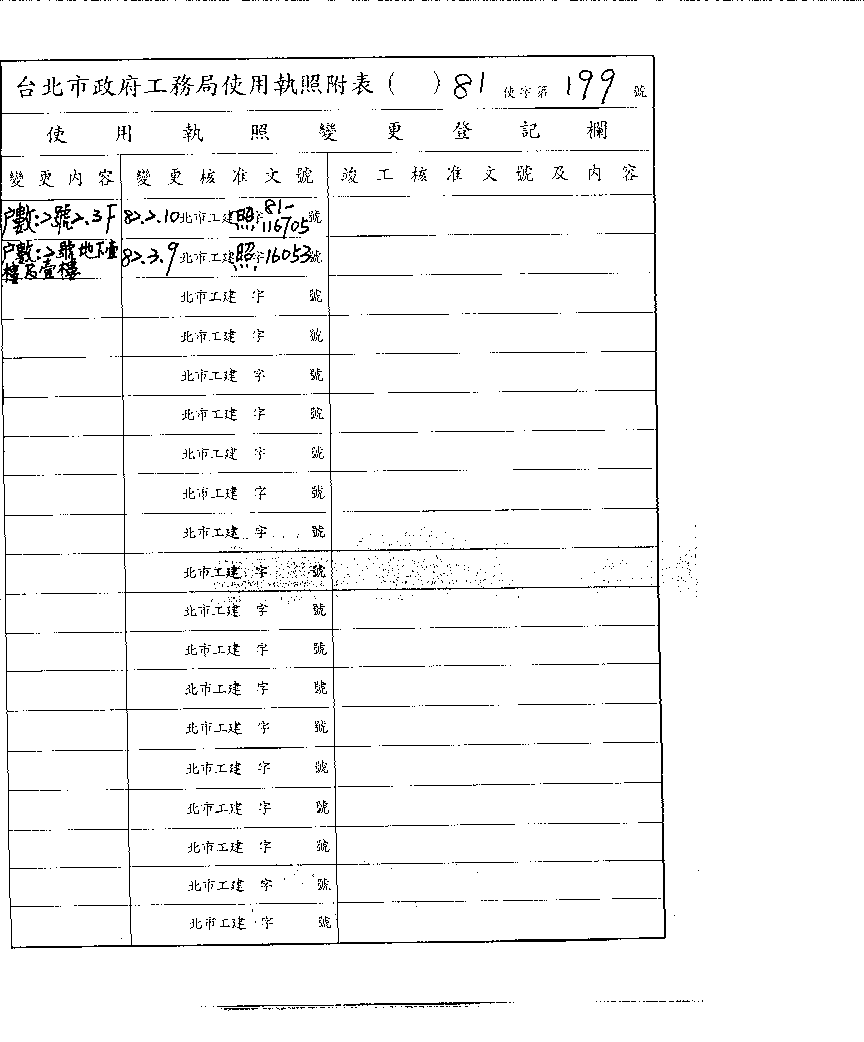 台北市政府工務局使用執照附表（　）81 使字第 199 號
使用執照變更登記欄
變更內容 變更核准文號 竣工核准文號及內容
户數:2號2.3F 82.2.10北市工建照字81-116705號
户數:2號地下壹樓及壹樓 82.3.9北市工建照字16053號
北市工建 字 號
北市工建 字 號
北市工建 字 號
北市工建 字 號
北市工建 字 號
北市工建 字 號
北市工建 字 號
北市工建 字 號
北市工建 字 號
北市工建 字 號
北市工建 字 號
北市工建 字 號
北市工建 字 號
北市工建 字 號
北市工建 字 號
北市工建 字 號
北市工建 字 號